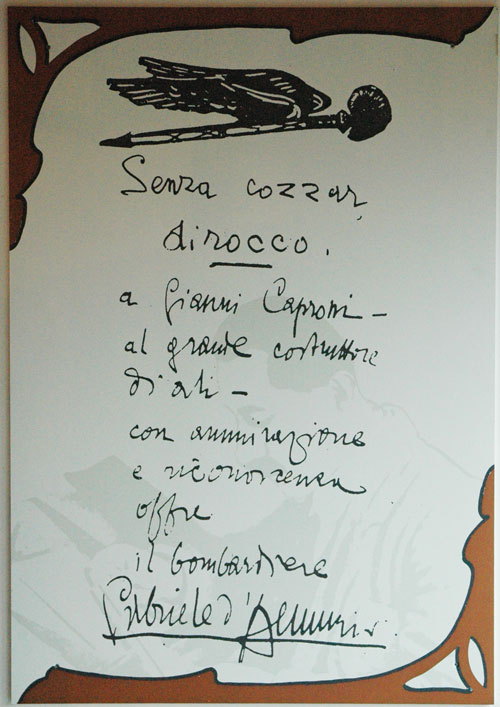 Senza cozzar
dirocco.
a Gianni Caproni –
al grande costruttore
di ali –
con ammirazione
e riconoscenza
offre
il bombardiere
Gabriele d'Annunzio.